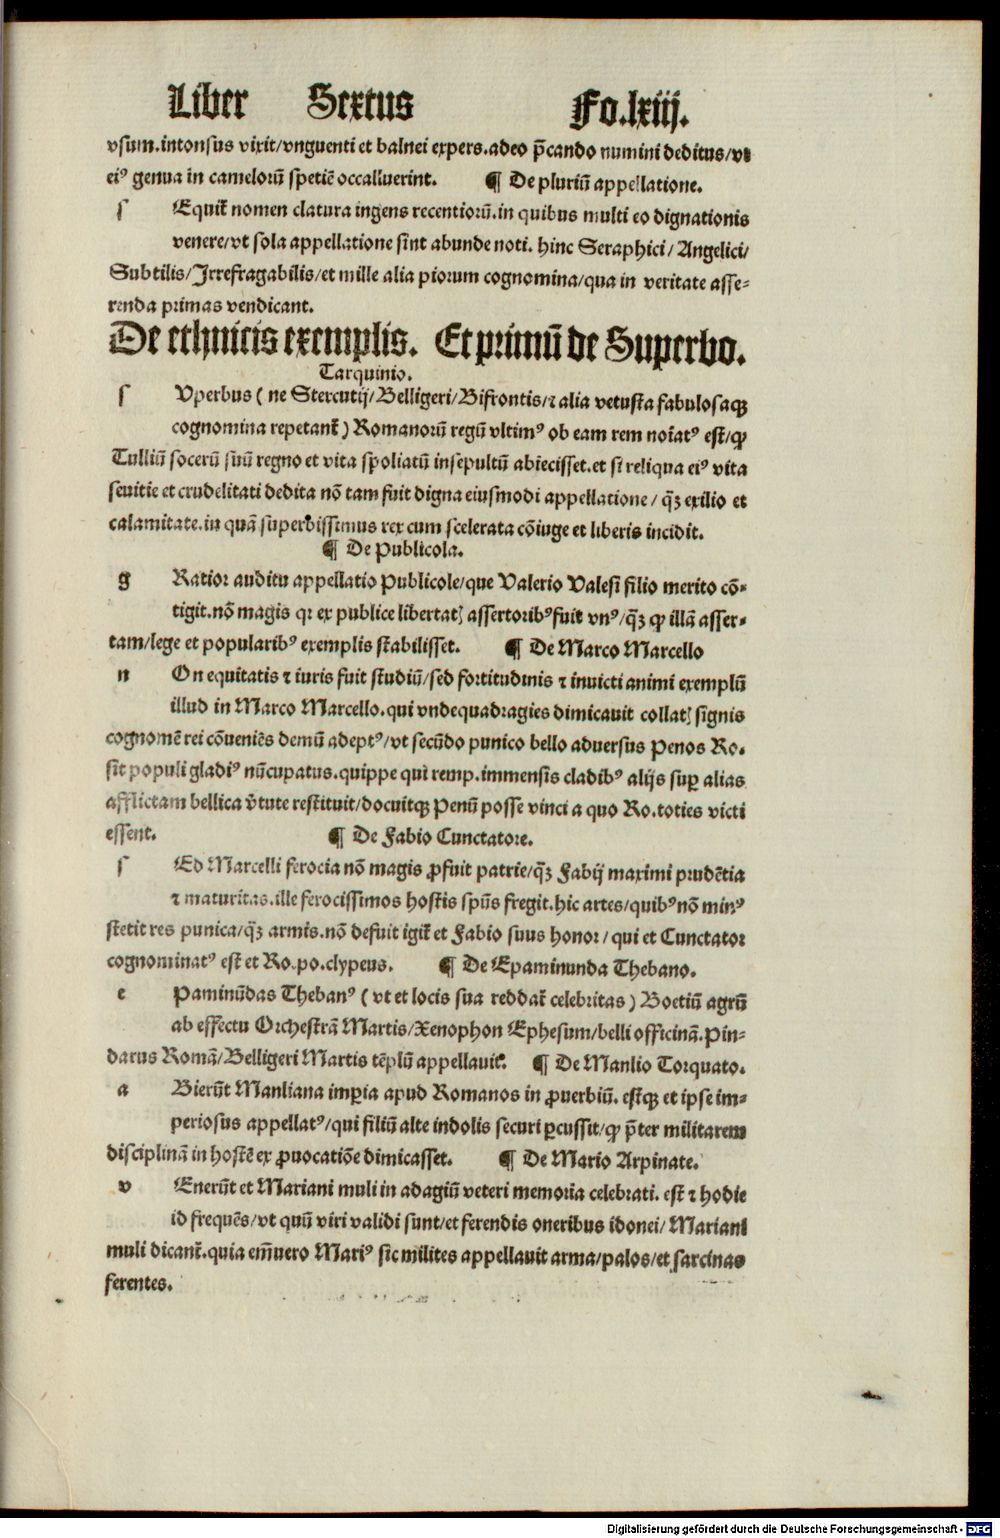 Liber Sextus Fo.lxiij.
vsum.intonsus vixit/vnguenti et balnei expers.adeo p̄cando numini deditus/vt
eiꝰ genua in camelorū spetiē occalluerint. ¶ De pluriū appellatione.
s Equit̄ nomen clatura ingens recentiorū.in quibus multi eo dignationis
venere/vt sola appellatione sint abunde noti. hinc Seraphici/Angelici/
Subtilis/Irrefragabilis/et mille alia piorum cognomina/qua in veritate asse⸗
renda primas vendicant.
De ethnicis exemplis. Et primū de Superbo.
Tarquinio.
s Vperbus ( ne Stercutij/Belligeri/Bifrontis/⁊ alia vetusta fabulosaqꝫ
cognomina repetant̄ ) Romanorū regū vltimꝰ ob eam rem noīatꝰ est/ꝙ
Tulliū socerū suū regno et vita spoliatū insepultū abiecisset.et si reliqua eiꝰ vita
seuitie et crudelitati dedita nō tam fuit digna eiusmodi appellatione/ q̄ꝫ exilio et
calamitate.in quā superbissimus rex cum scelerata cōiuge et liberis incidit.
¶ De Publicola.
g Ratior auditu appellatio Publicole/que Valerio Valesi filio merito cō⸗
tigit.nō magis qꝛ ex publice libertatꝭ assertoribꝰ fuit vnꝰ/q̄ꝫ ꝙ illā asser⸗
tam/lege et popularibꝰ exemplis stabilisset. ¶ De Marco Marcello
n On equitatis ⁊ iuris fuit studiū/sed fortitudinis ⁊ inuicti animi exemplū
illud in Marco Marcello.qui vndequadragies dimicauit collatꝭ signis
cognomē rei cōueniēs demū adeptꝰ/vt secūdo punico bello aduersus Penos Ro.
sit populi gladiꝰ nūcupatus.quippe qui remp.immensis cladibꝰ alijs suꝑ alias
afflictam bellica v̄tute restituit/docuitqꝫ Penū posse vinci a quo Ro.toties victi
essent. ¶ De Fabio Cunctatore.
s Ed Marcelli ferocia nō magis ꝓfuit patrie/q̄ꝫ Fabij maximi prudētia
⁊ maturitas.ille ferocissimos hostis spūs fregit.hic artes/quibꝰ nō minꝰ
stetit res punica/q̄ꝫ armis.nō defuit igit̄ et Fabio suus honor/qui et Cunctator
cognominatꝰ est et Ro.po.clypeus. ¶ De Epaminunda Thebano.
e Paminūdas Thebanꝰ ( vt et locis sua reddat̄ celebritas ) Boetiū agrū
ab effectu Orchestrā Martis/Xenophon Ephesum/belli officinā.Pin⸗
darus Romā/Belligeri Martis tēplū appellauit̄. ¶ De Manlio Torquato.
a Bierūt Manliana imꝑia apud Romanos in ꝓuerbiū. estqꝫ et ipse im⸗
periosus appellatꝰ/qui filiū alte indolis securi ꝑcussit/ꝙ p̄ter militarem
disciplinā in hostē ex ꝓuocatiōe dimicasset. ¶ De Mario Arpinate.
v Enerūt et Mariani muli in adagiū veteri memoria celebrati. est ⁊ hodie
id frequēs/vt quū viri validi sunt/et ferendis oneribus idonei/Mariani
muli dicant̄.quia em̄uero Mariꝰ sic milites appellauit arma/palos/et sarcinas
ferentes.
Digitalisierung gefördert durch die Deutsche Forschungsgemeinschaft - DFG